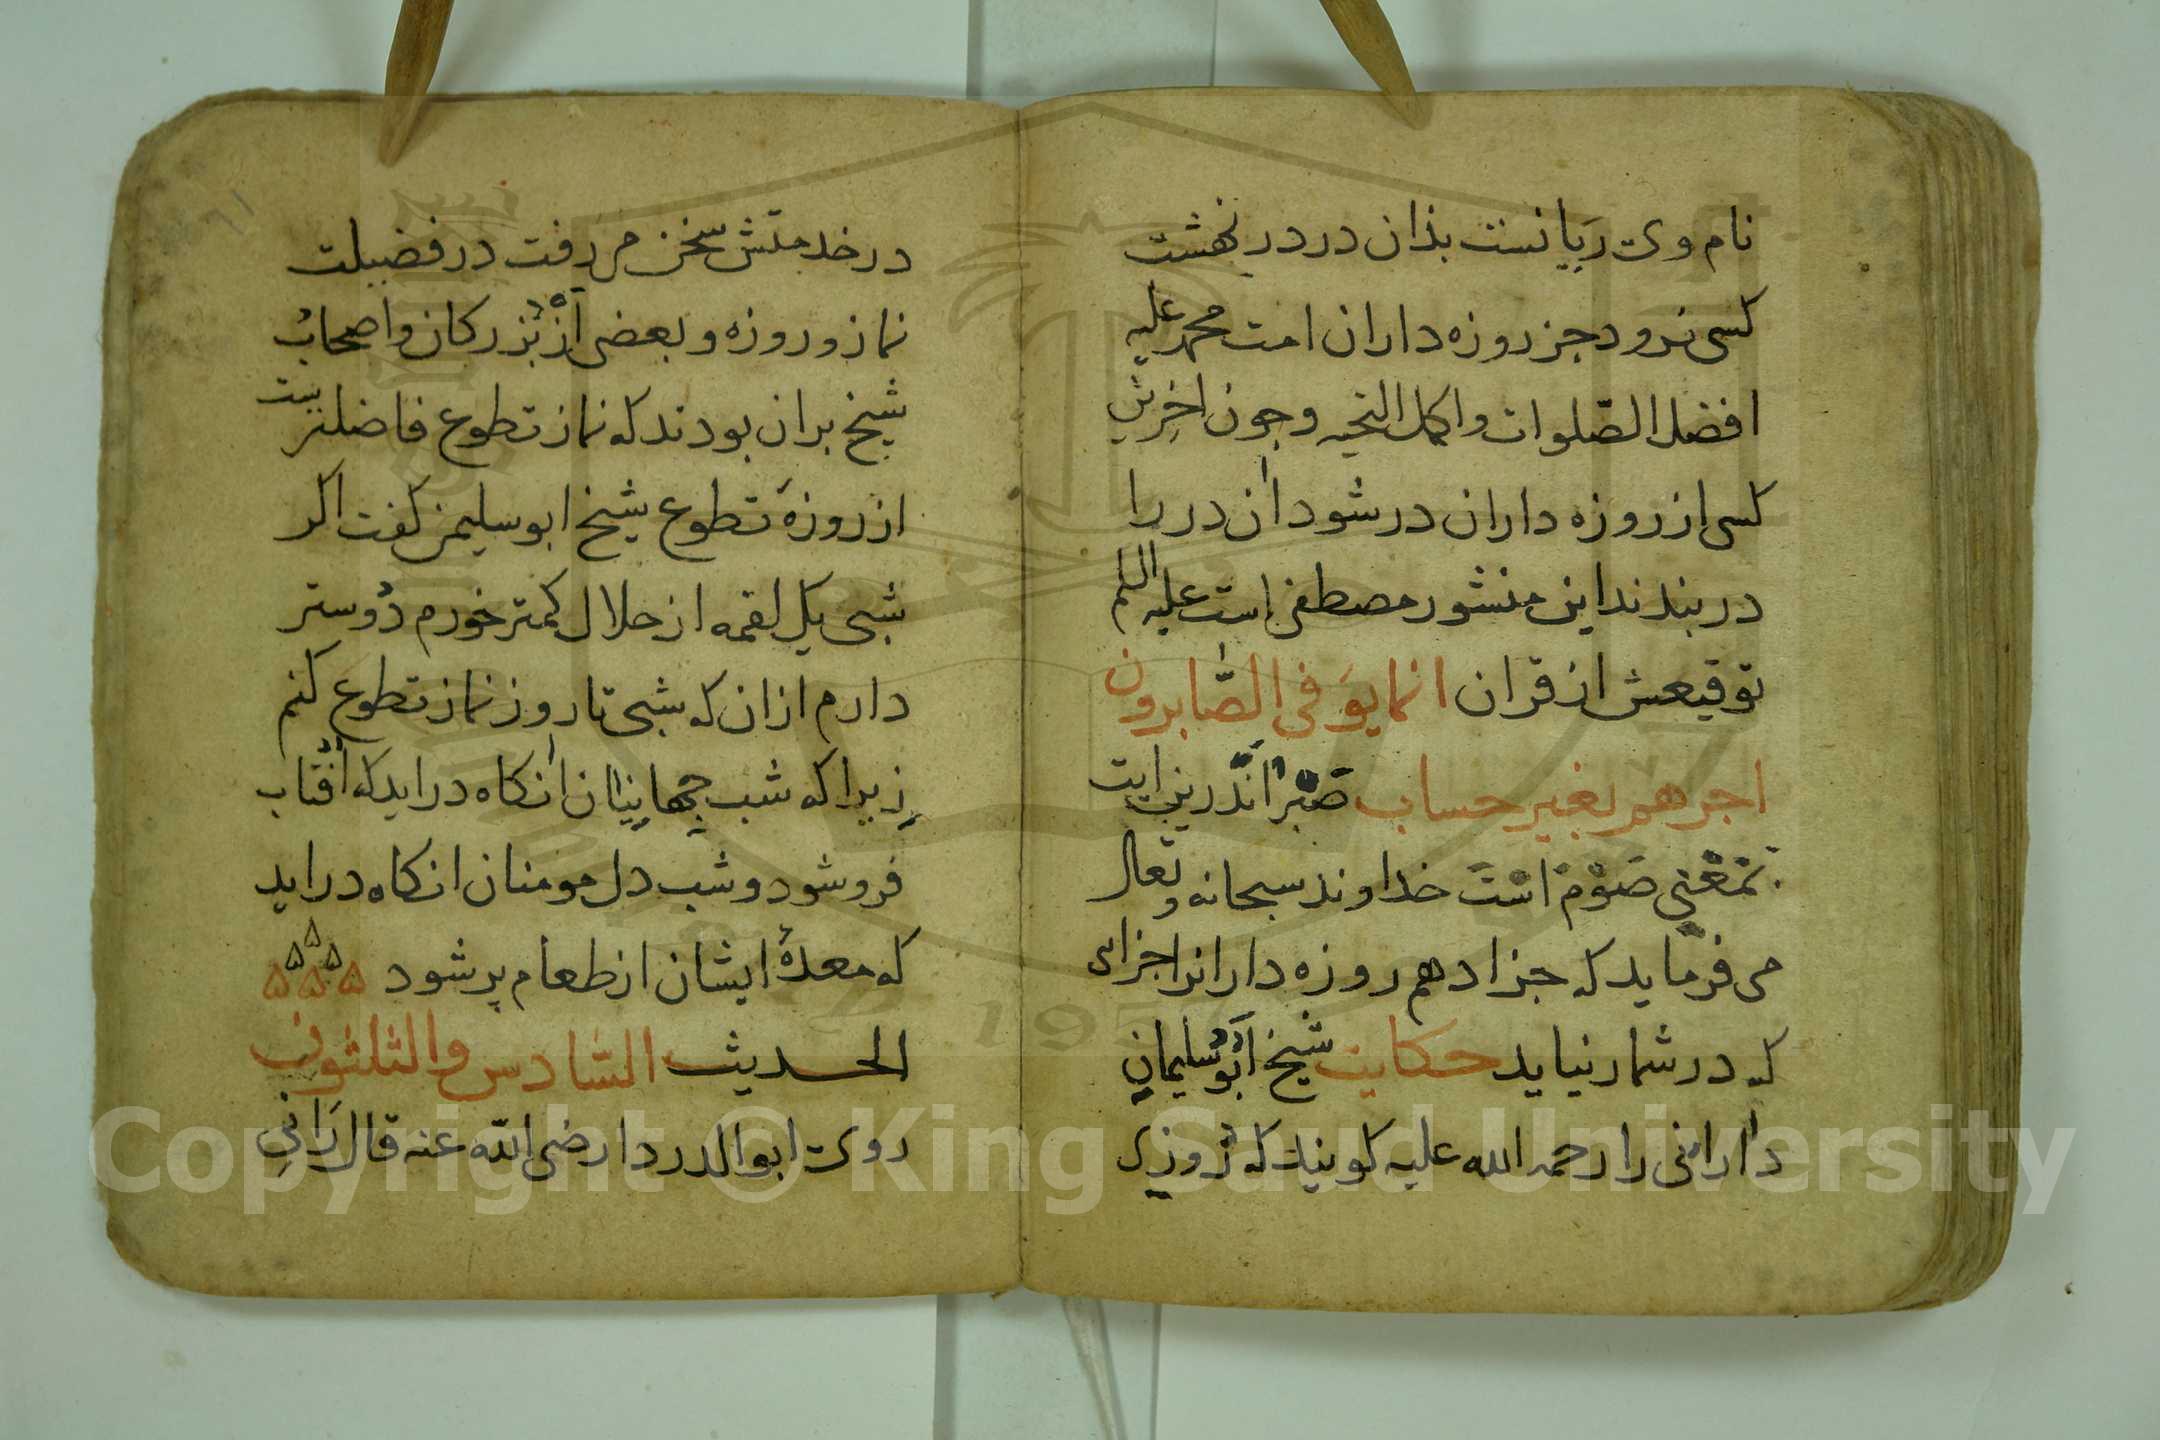 نام وی ریانست بذان در در بهشت
کسی نرود جز روزه داران امت محمد علیه
افضل الصّلوات و اکمل التحیه و جون اخرین
کسی از روزه داران در شود ان در را
در بندند این منشور مصطفی است علیه السلم
توقیعش از قران انما یوَفی الصّابرون
اجرهم بغیر حساب صَبْر اَنْدرین ایت
بمَعْنی صَوْمْ اسْتَ خداوند سبحانه و تعالی
می فرماید که جزا دهم روزه دارانرا جزایی
که در شمار نیاید حکایت شیخ اَبُو سلیمان
دارانی را رحمه الله علیه کویند که رُوزی
در خدمتش سخن می رفت در فضیلت
نماز و روزه و بعضی اَزْ بُزرکان و اصحاب
شیخ بران بودند که نماز تطوع فاضلتریت
از روزهٔ تطوع شیخ ابو سلیمن کفت اکر
شبی یک لقمه از حلال کمتر خورم دُوستر
دارم ازان که شبی تا روز نماز تطوع کنم
زیرا که شب جهانیان انکاه دراید که افتاب
فرو شود و شب دل مومنان انکاه دراید
که معدهٔ ایشان از طعام پر شود
الحدیث السّادس و الثلثون
روی ابو الدردا رضی اللّه عنه قال رَانی
Copyright © King Saud University